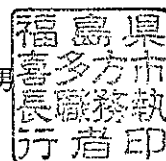 福島県
喜多方市
長職務執
行者印